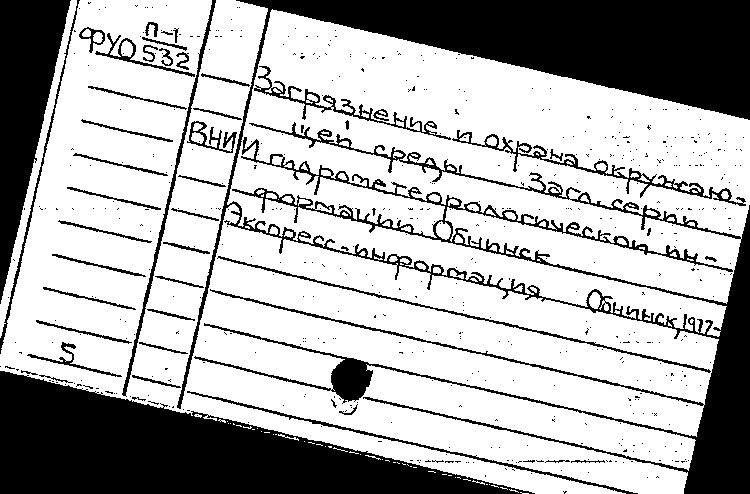 ФУО П-1
532
Загрязнение и охрана окружаю-
щей среды Загл. серии
ВНИИ гидрометеорологической ин-
формации. Обнинск
Экспресс-информация. Обнинск, 1977-
5